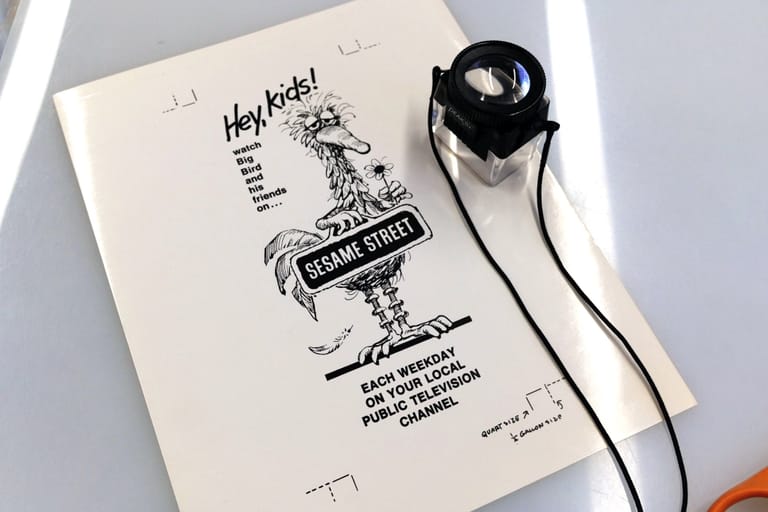 Hey, kids!
watch
Big
Bird
and
his
friends
on...
SESAME STREET
EACH WEEKDAY
ON YOUR LOCAL
PUBLIC TELEVISION
CHANNEL
QUART SIZE
½ GALLON SIZE